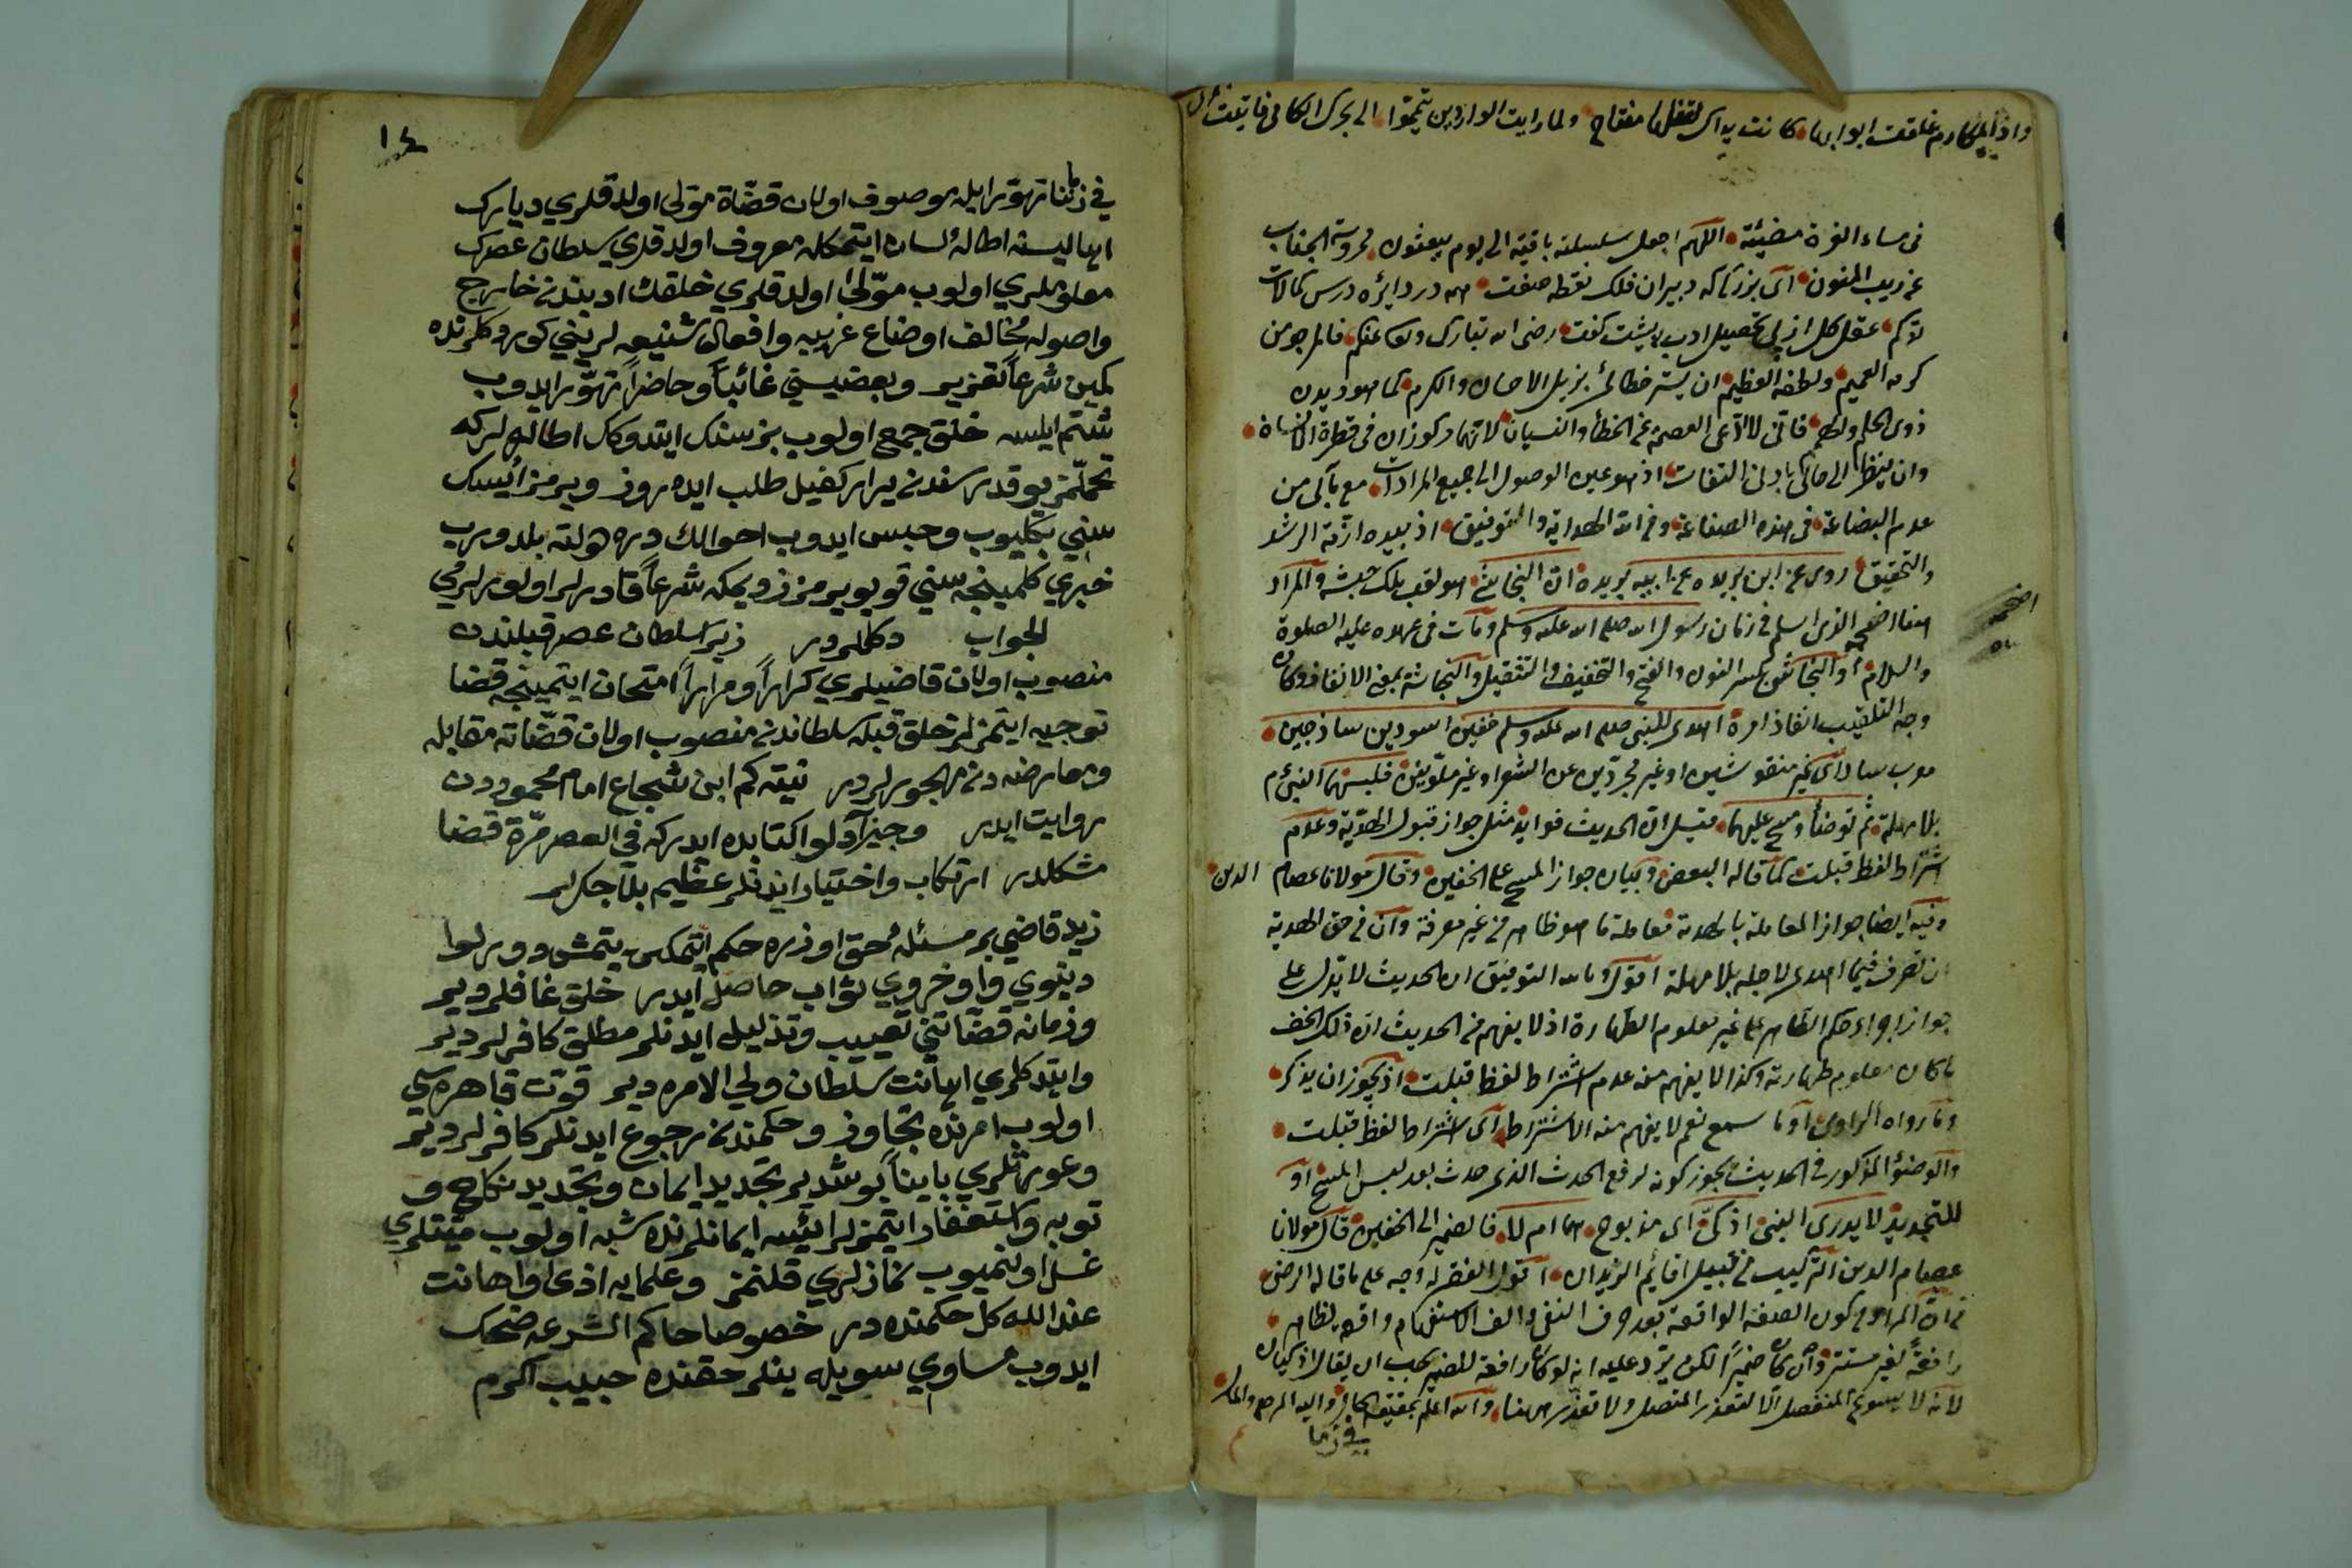 واذا المكارم غلقت ابوابها كانت يداك لقفلها مفتاح ولما رايت الواردين تيمموا الى بحرك
فى سماء الغرة مضيئة اللهم اجعل سلسلته باقية الى يوم يبعثون محروسة الجناب
عن ريب المنون اى بزركى كه دبيران فلك نقطه صفت همه در دايره درس كمالات
عقل كل از پى تحصيل ادب رضى الله تبارك وتعالى عنكم فالمرجو من
كرمه العميم ولطفه العظيم ان يستر خطائى بذيل الاحسان والكرم كما هو ديدن
ذوى الحلم فانى لا ادعى العصمة عن الخطأ والنسيان لانهما مركوزان فى فطرة الانسان
وان ينظر الى حالى بادنى التفات اذ هو عين الوصول الى جميع المرادات مع مآلى من
عدم البضاعة فى هذه الصناعة ومن الله الهداية والتوفيق اذ بيده ازمة الرشد
والتحقيق روى عن ابن بريدة عن ابيه بريدة ان النجاشى هو لقب ملك حبشة والمراد
هنا اصحمة الذى اسلم فى زمان رسول الله صلى الله عليه وسلم ومات فى عهده عليه الصلوة
والسلام والنجاشى بكسر النون والفتح والتخفيف والتثقيل والنجاشة بمعنى الانفاذ وكان
وجه التلقيب انفاذ امره اهدى للنبى صلى الله عليه وسلم خفين اسودين ساذجين
معرب ساده اى غير منقوشين او غير مجردين عن الشعر او غير ملونين فلبسهما النبى م
بلا مهلة ثم توضأ ومسح عليهما قيل ان الحديث فوايد مثل جواز قبول الهدية وعدم
اشتراط لفظ قبلت كما قاله البعض وبيان جواز المسح على الخفين وقال مولانا عصام الدين
وفيه ايضا جواز المعاملة بالهدية معاملة ما هو ظاهر من غير معرفة وان فى حق الهدية
ان تصرف فيما اهدى لاجله بلا مهلة اقول وبالله التوفيق ان الحديث لا يدل على
جواز اجراء حكم الظاهر على غير معلوم الطهارة اذ لا يفهم من الحديث ان ذلك الخف
ما كان معلوم طهارته وكذا لا يفهم منه عدم اشتراط لفظ قبلت اذ يجوز ان يذكر
وما رواه الراوى او ما سمع نعم لا يفهم منه الاشتراط اى اشتراط لفظ قبلت
والوضوء المذكور فى الحديث يجوز كونه لرفع الحدث الذى حدث بعد لبس المسح او
للتجديد لا يدرى النبى اذكى اى مذبوح هما ام لا فالضمير الى الخفين قال مولانا
عصام الدين التركيب من قبيل اقائم الزيدان اقول الفقير له وجه على ما قاله الرضى
من ان المراد كون الصفة الواقعة بعد حرف النفى والف الاستفهام واقعة لظاهر
رافعة لغير مستتر وان كان ضميرا لكن يرد عليه انه لو كان رافعة للضمير يجب ان يقال اذكيان
لانه لا يسوغ المنفصل الا لتعذر المتصل ولا تعذر ههنا والله اعلم بحقيقة الحال واليه المرجع والمآب
فى زما
اصحمه
١٤
فى زماننا تهور ايله موصوف اولان قضاة مولى اولدقلرى ديارك
اهاليسنه اطاله لسان ايتمكله معروف اولدقلرى سلطان عصرك
معلوملرى اولوب مولى اولدقلرى خلقك ادبندن خارج
واصوله مخالف اوضاع غريبه وافعال شنيعه لرينى كوردكلرنده
كمين شرعا تعزير وبعضيسنى غائبا وحاضرا تهور ايدوب
شتم ايلسه خلق جمع اولوب بز سنك ايتدوكك اطاله لركه
تحمل ايتمزيز بو قدر سندن بيزار كفيل طلب ايده روز ويرمز ايسك
سنى بكليوب وحبس ايدوب احوالك دولته بلدروب
خبرى كلمينجه سنى قويويرمزز ديمكه شرعا قادرلر اولورلرمى
الجواب دكلردر زيرا سلطان عصر قبلندن
منصوب اولان قاضيلرى كرارا ومرارا امتحان ايتمينجه قضا
توجيه ايتمزلر خلق قبل سلطاندن منصوب اولان قضاته مقابله
ومعارضه دن مهجورلردر نيته كم ابن شجاع امام محموددن
روايت ايدر وجيز آدلو كتابده ايدركه فى العصر مرة قضا
مشكلدر ارتكاب واختيار ايدنلر عظيم بلا چكرلر
زيد قاضى بر مسئله حق اوزره حكم ايتمكى يتمش دورلو
دنيوى واخروى ثواب حاصل ايدر خلق غافلردير
وزمانه قضاتنى تعييب وتذليل ايدنلر مطلق كافرلردير
وايتدكلرى اهانت سلطان ولى الامره دير قوت قاهره سى
اولوب امرنده تجاوز وحكمندن رجوع ايدنلر كافرلردير
وعورتلرى باينا بوشدير تجديد ايمان وتجديد نكاح و
توبه واستغفار ايتمزلر ايسه ايمانلرنده شبهه اولوب ميتلرى
غسل اولنميوب نمازلرى قلنمز وعلمايه اذى واهانت
عند الله كل حكمنده در خصوصا حاكم الشرعه ضحك
ايدوب مساوى سويله ينلر حقنده حبيب اكرم